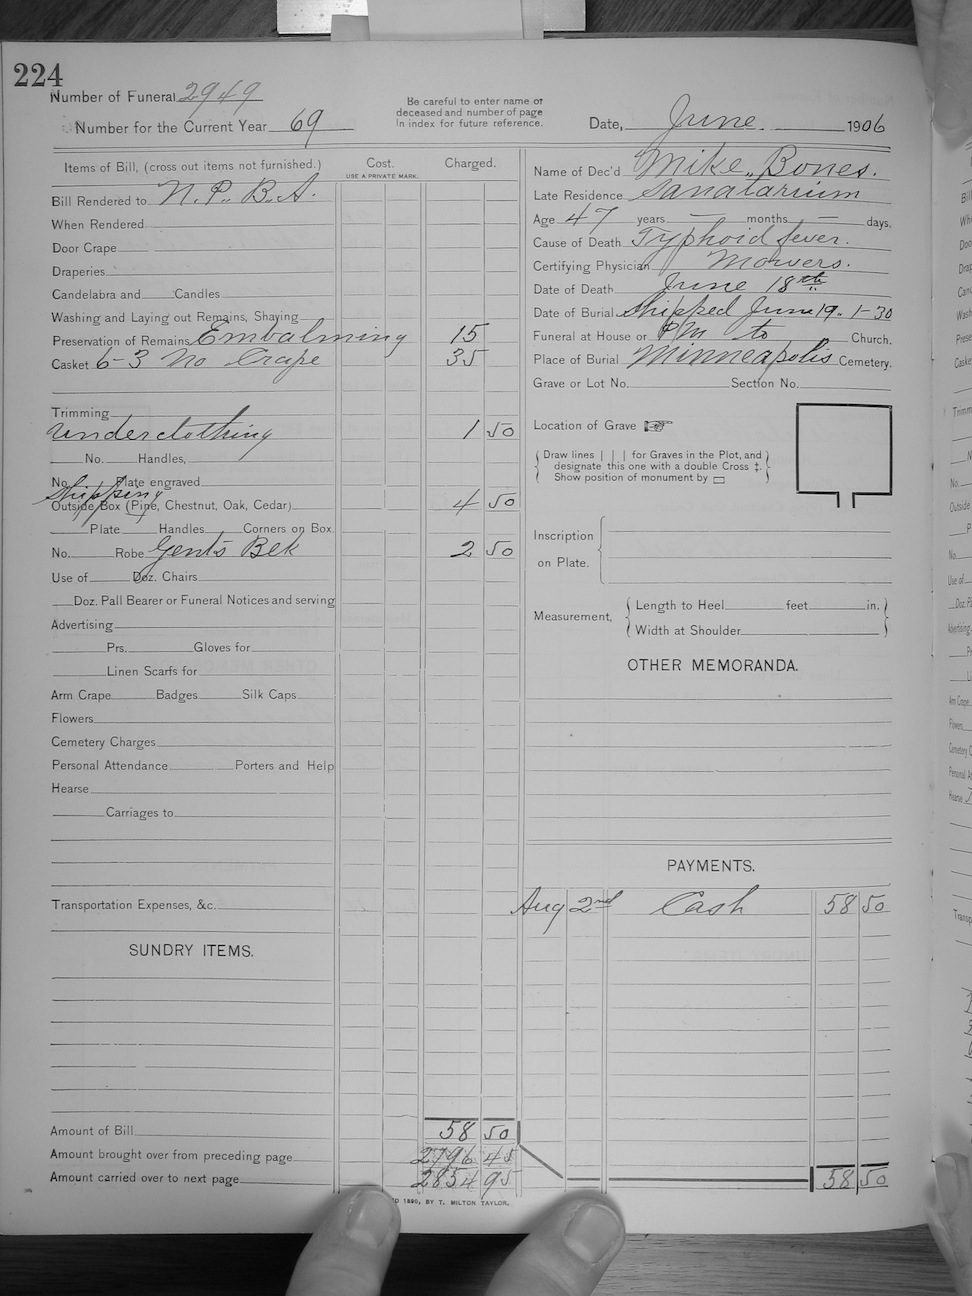 224
Number of Funeral 2949
Number for the Current Year 69
Be careful to enter name or
deceased and number of page
in index for future reference.
Date, June 1906
Items of Bill, (cross out items not furnished.)
Cost.
USE A PRIVATE MARK.
Charged.
Bill Rendered to N. P. B. A.
When Rendered
Door Crape
Draperies
Candelabra and Candles
Washing and Laying out Remains, Shaving
Preservation of Remains Embalming 15
Casket 6-3 No Crape 35
Trimming
Underclothing 1 50
No. Handles,
No. Plate engraved
Shipping
Outside Box (Pine, Chestnut, Oak, Cedar) 4 50
Plate Handles Corners on Box
No. Robe Gents Blk 2 50
Use of Doz. Chairs
Doz. Pall Bearer or Funeral Notices and serving
Advertising
Prs. Gloves for
Linen Scarfs for
Arm Crape Badges Silk Caps
Flowers
Cemetery Charges
Personal Attendance Porters and Help
Hearse
Carriages to
Transportation Expenses, &c.
SUNDRY ITEMS.
Amount of Bill 58 50
Amount brought over from preceding page 2796 45
Amount carried over to next page 2854 95
1890, BY T. MILTON TAYLOR.
Name of Dec'd Mike Bones.
Late Residence Sanatarium
Age 47 years — months — days,
Cause of Death Typhoid fever.
Certifying Physician Mowers.
Date of Death June 18th
Date of Burial Shipped June 19. 1-30
Funeral at House or P M to Church,
Place of Burial Minneapolis Cemetery.
Grave or Lot No. Section No.
Location of Grave
Draw lines | | | for Graves in the Plot, and
designate this one with a double Cross ‡.
Show position of monument by
Inscription
on Plate.
Measurement,
Length to Heel feet in.
Width at Shoulder
OTHER MEMORANDA.
PAYMENTS.
Aug 2nd Cash 58 50
58 50